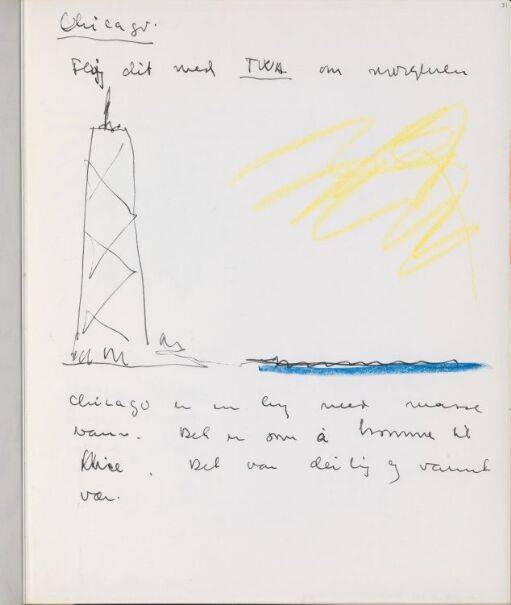 Chicago.
Fløj dit med TWA om morgenen
Chicago er en by med masse
vann. Det er som å komme til
. Det var deilig og varmt
vær.